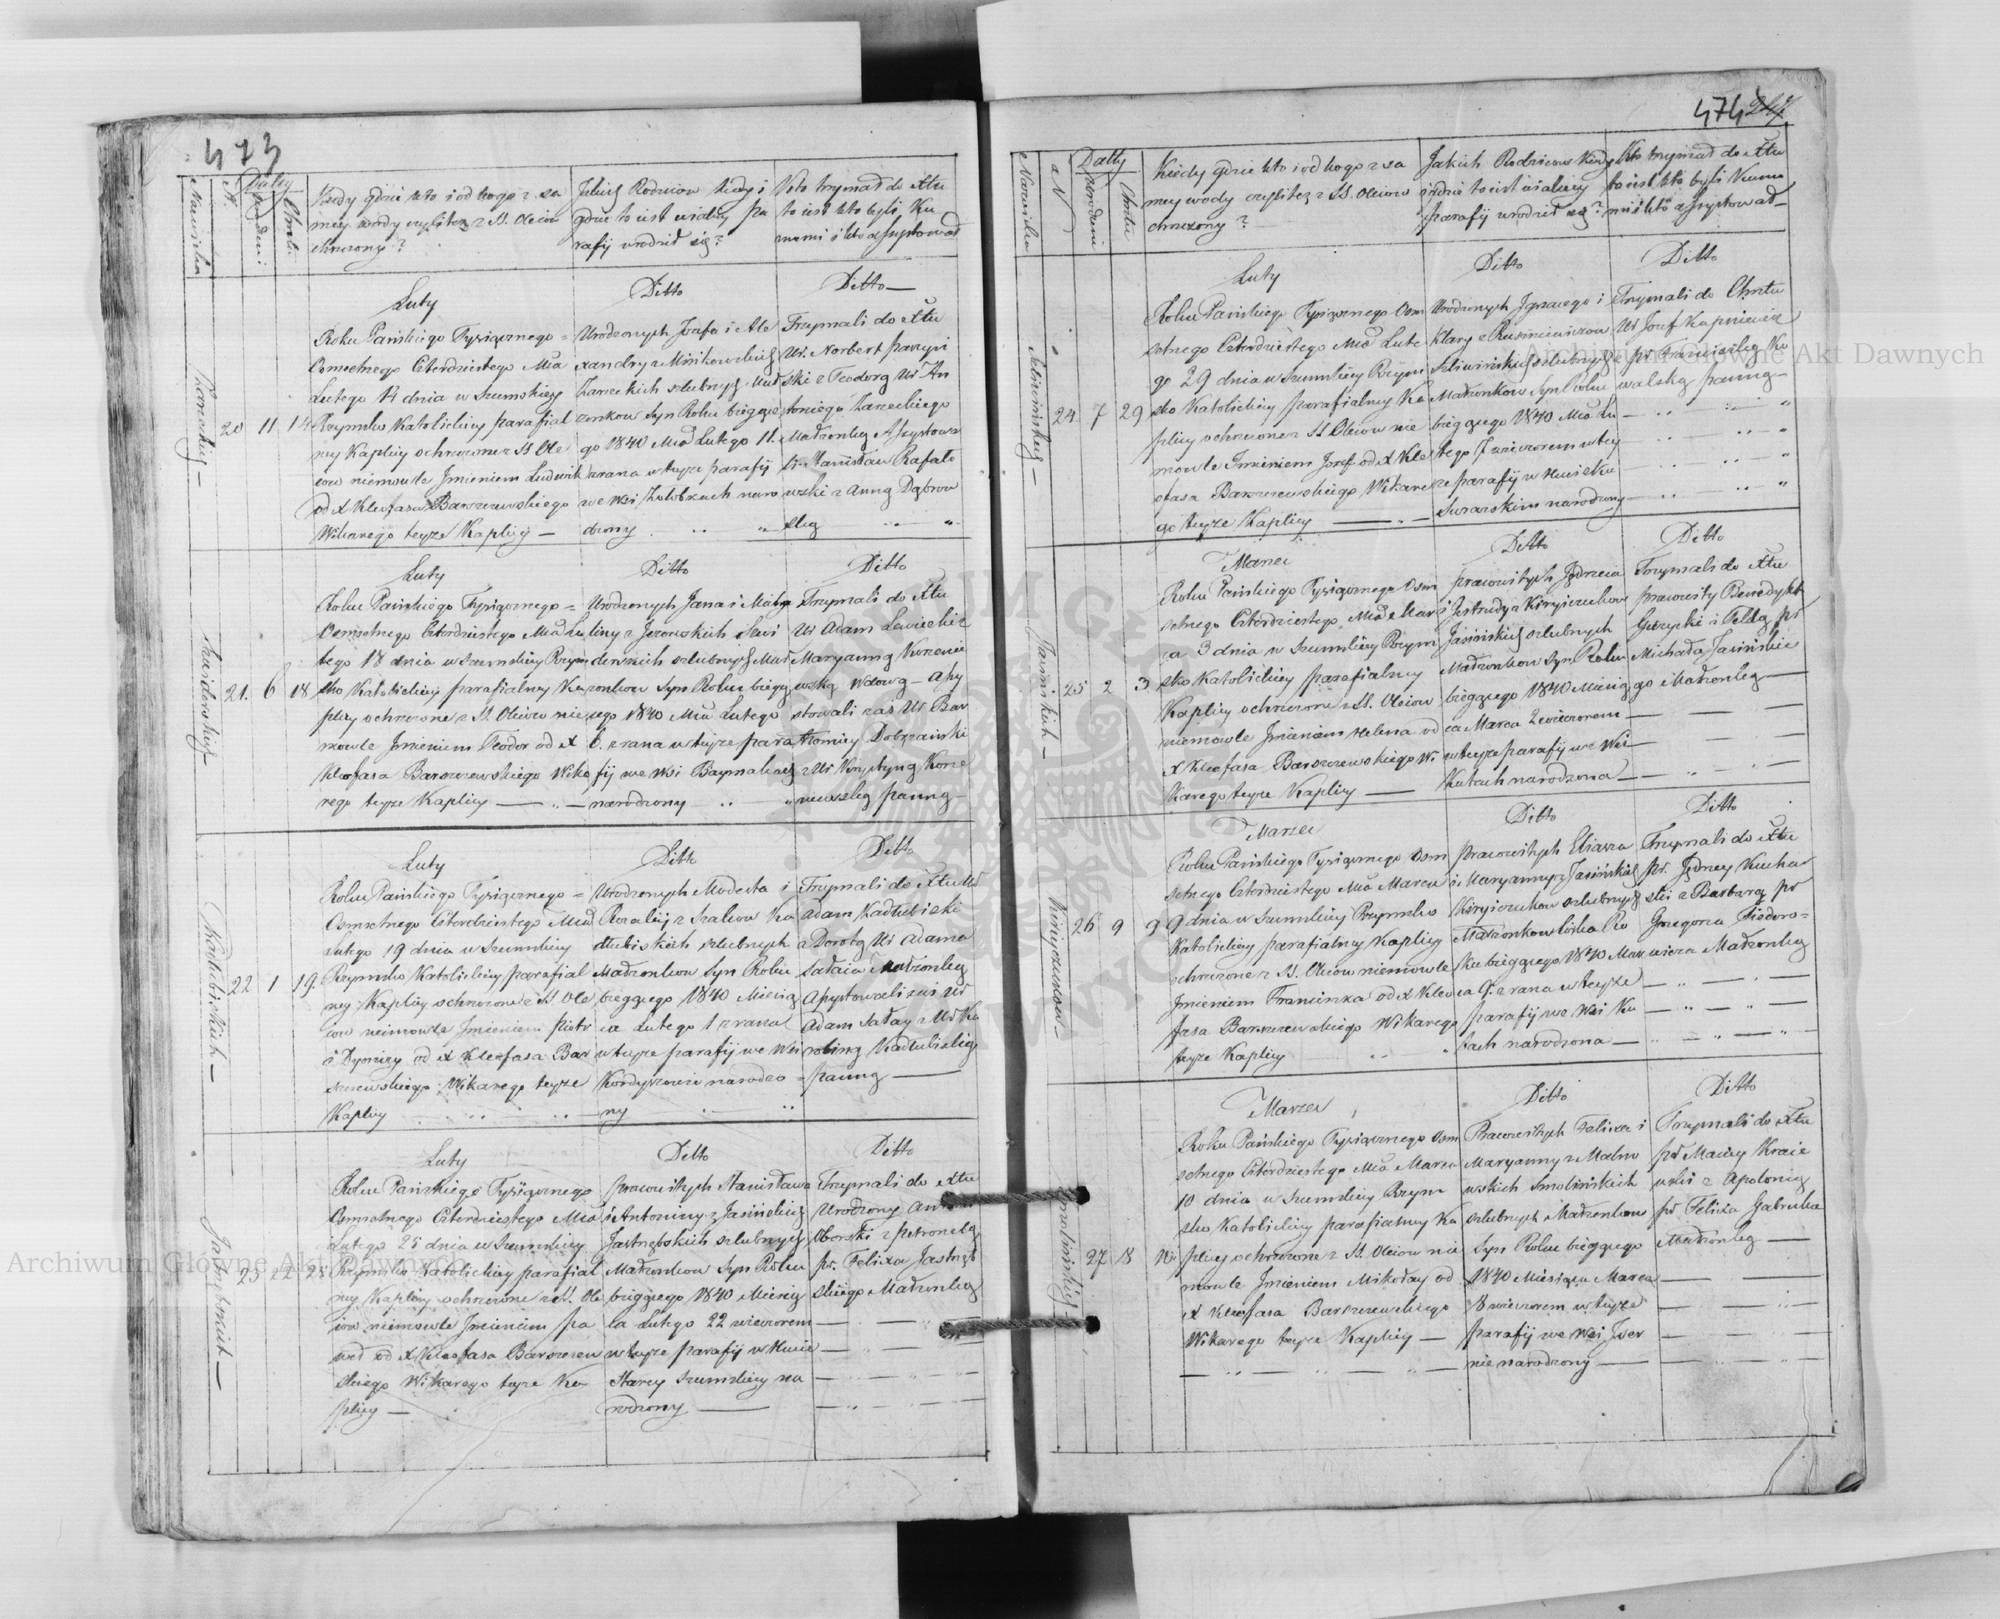 473
Nazwiska
N.
Datty
Urodzeni
Chrztu
Kiedy gdzie kto i od kogo z sa
mey wody czyli też z SS. Oleiow
chrzczony?
Jakich Rodzicow kiedy i
gdzie to iest w iakiey pa
rafij urodził się?
Kto trzymał do Xtu
to iest kto byli Ku
mami i kto assystował
Luty
Ditto
Ditto
Zarzeckiej
20
11
14
Roku Pańskiego Tysiącznego
Osmsetnego Czterdziestego Mca
Lutego 14 dnia w Szumskiey
Rzymsko Katolickiey parafial
ney Kaplicy ochrzczone z SS Ole
iow niemowle Jmieniem Ludwik
od X Kleofasa Barszczewskiego
Wikarego teyże Kaplicy
Urodzonych Jozefa i Ale
xandry z Minkowskich
Zarzeckich szlubnych Mał
żonkow Syn Roku bieżące
go 1840 Mca Lutego 11.
zrana w teyże parafij
we Wsi Żołobkach naro
dzony
Trzymali do Xtu
Ur. Norbert
ski z Teodorą Ur An
toniego Zarzeckiego
Małżonką Assystowa
li Stanisław Rafało
wski z Anną Dąbrow
ską
Luty
Ditto
Ditto
21.
6
18
Roku Pańskiego Tysiącznego
Osmsetnego Czterdziestego Mca Lu
tego 18 dnia w Szumskiey Rzym
sko Katolickiey parafialney Ka
plicy ochrzczone z SS. Oleiow nie
mowle Jmieniem Teodor od X
Kleofasa Barszczewskiego Wika
rego teyże Kaplicy
Urodzonych Jana i Mał
derskich szlubnych Mał
żonkow Syn Roku bieżą
cego 1840 Mca Lutego
6. zrana w teyże para
fij we Wsi
narodzony
Trzymali do Xtu
Ur Adam
Maryanną
wską Wdową Assy
stowali zaś Ur Bar
tłomiey Dobrzański
z Ur Krystyną Korze
niewską panną
Luty
Ditto
Ditto
Kadłubiskich
22
1
19.
Roku Pańskiego Tysiącznego
Osmsetnego Czterdziestego Mca
Lutego 19 dnia w Szumskiey
Rzymsko Katolickiey parafial
ney Kaplicy ochrzczone z SS Ole
iow niemowle Jmieniem Piotr
i Dyonizy od X Kleofasa Bar
szczewskiego Wikarego teyże
Kaplicy
Urodzonych Modesta i
Rozalij z Szalow Ka
dłubiskich szlubnych
Małżonkow Syn Roku
bieżącego 1840 Miesią
ca Lutego 1 zrana
w teyże parafij we Wsi
Kordyszowie narodzo
ny
Trzymali do Xtu Ur
Adam Kadłubiski
z Dorotą Ur Adama
Sałaia Małżonką
Assystowali zaś Ur
Adam Sałay z Ur Ka
roliną Kadłubiską
panną
Luty
Ditto
Ditto
23
22
25
Roku Pańskiego Tysiącznego
Osmsetnego Czterdziestego Mca
Lutego 25 dnia w Szumskiey
Rzymsko Katolickiey parafial
ney Kaplicy ochrzczone z SS. Ole
iow niemowle Jmieniem Pa
weł od X Kleofasa Barszczew
skiego Wikarego teyże Ka
plicy
pracowitych Stanisława
i Antoniny z Jasińskich
Jastrzębskich szlubnych
Małżonkow Syn Roku
bieżącego 1840 Miesią
ca Lutego 22 wieczorem
w teyże parafij w Hucie
Starey Szumskiey na
rodzony
Trzymali do Xtu
Urodzony Antoni
Oborski z Petronelą
pr. Felixa Jastrzęb
skiego Małżonką
474
Nazwiska
N
Datty
Urodzeni
Chrztu
Kiedy gdzie kto i od kogo z sa
mey wody czyli też z SS. Oleiow
chrzczony?
Jakich Rodzicow kiedy
i gdzie to iest w iakiey
parafij urodził się?
Kto trzymał do Xtu
to iest kto byli Kuma
mi i kto assystował
Luty
Ditto
Ditto
24
7
29
Roku Pańskiego Tysiącznego Osm
setnego Czterdziestego Mca Lute
go 29 dnia w Szumskiey Rzym
sko Katolickiey parafialney Ka
plicy ochrzczone z SS Oleiow nie
mowle Jmieniem Jozef od X Kle
ofasa Barszczewskiego Wikare
go teyże Kaplicy
Urodzonych Jgnacego i
Klary z
Sliwińskich szlubnych
Małżonkow Syn Roku
bieżącego 1840 Mca Lu
tego 7 wieczorem w tey
że parafij w
narodzony
Trzymali do Chrztu
Ur Jozef
pr Franciszką Ko
walską panną
Marzec
Ditto
Ditto
Jasińskich
25
2
3
Roku Pańskiego Tysiącznego Osm
setnego Czterdziestego Mca Mar
ca 3 dnia w Szumskiey Rzym
sko Katolickiey parafialney
Kaplicy ochrzczone z SS. Oleiow
niemowle Jmieniem Helena od
X Kleofasa Barszczewskiego Wi
karego teyże Kaplicy
pracowitych Jędrzeia
i Jestrudy z Kiryiczukow
Jasińskich szlubnych
Małżonkow Roku
bieżącego 1840 Miesią
ca Marca 2 wieczorem
w teyże parafij we Wsi
Kutach narodzona
Trzymali do Xtu
pracowity Benedykt
i Teklą pr
Michała Jasińskie
go Małżonką
Marzec
Ditto
Ditto
Kiryiczukow
26
9
9
Roku Pańskiego Tysiącznego Osm
setnego Czterdziestego Mca Marca
9 dnia w Szumskiey Rzymsko
Katolickiey parafialney Kaplicy
ochrzczone z SS. Oleiow niemowle
Jmieniem Franciszka od X Kleo
fasa Barszczewskiego Wikarego
teyże Kaplicy
pracowitych Eliasza
i Maryanny z Jasińskich
Kiryiczukow szlubnych
Małżonkow Córka Ro
ku bieżącego 1840 Mar
ca 9. zrana w teyże
parafij we Wsi Ku
tach narodzona
Trzymali do Xtu
pr. Jędrzey Kucha
ski z Barbarą pr
Grzegorza Fiodoro
wicza Małżonką
Marzec
Ditto
Ditto
Smolińskiej
27
8
10
Roku Pańskiego Tysiącznego Osm
setnego Czterdziestego Mca Marca
10 dnia w Szumskiey Rzym
sko Katolickiey parafialney Ka
plicy ochrzczone z SS Oleiow nie
mowle Jmieniem Mikołay od
X Kleofasa Barszczewskiego
Wikarego teyże Kaplicy
Pracowitych Felixa i
Maryanny z Malino
wskich Smolińskich
szlubnych Małżonkow
Syn Roku bieżącego
1840 Miesiąca Marca
8 wieczorem w teyże
parafij we Wsi Jser
nie narodzony
Trzymali do Xtu
pr Maciey Kraie
wski z Apolonią
pr Felixa Gabruka
Małżonką
Archiwum Główne Akt Dawnych
Archiwum Główne Akt Dawnych